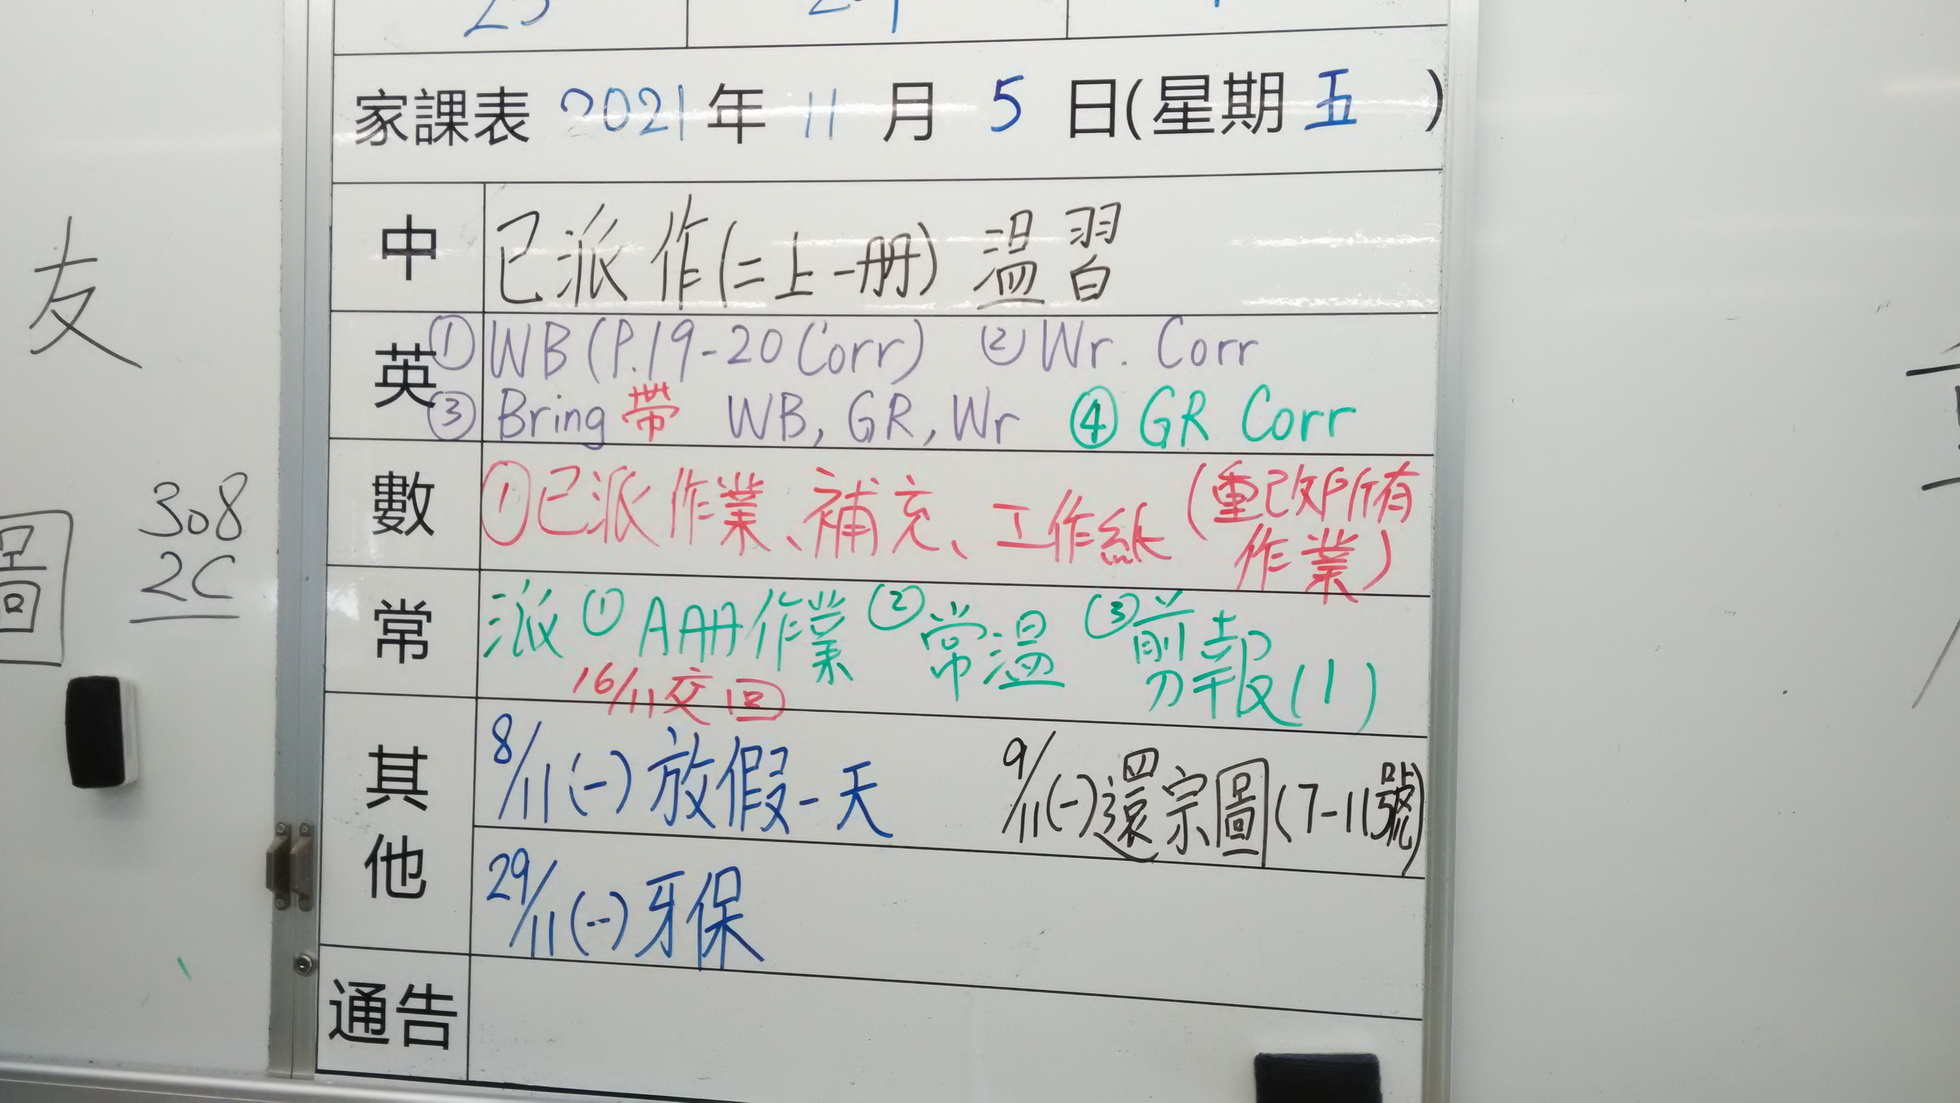 家課表 2021年 11 月 5 日(星期五)
中 已派作(二上一冊) 溫習
英 ①WB(P.19-20 Corr) ②Wr. Corr
③ Bring 帶 WB, GR, Wr ④ GR Corr
數 ①已派作業、補充、工作紙(重改所有
作業)
常 派①AA冊作業②常溫 ③剪報(1)
16/11交回
其他 8/11(一)放假一天 9/11(一)還宗圖(7-11號)
29/11(一)牙保
通告
友
圖
308
2C